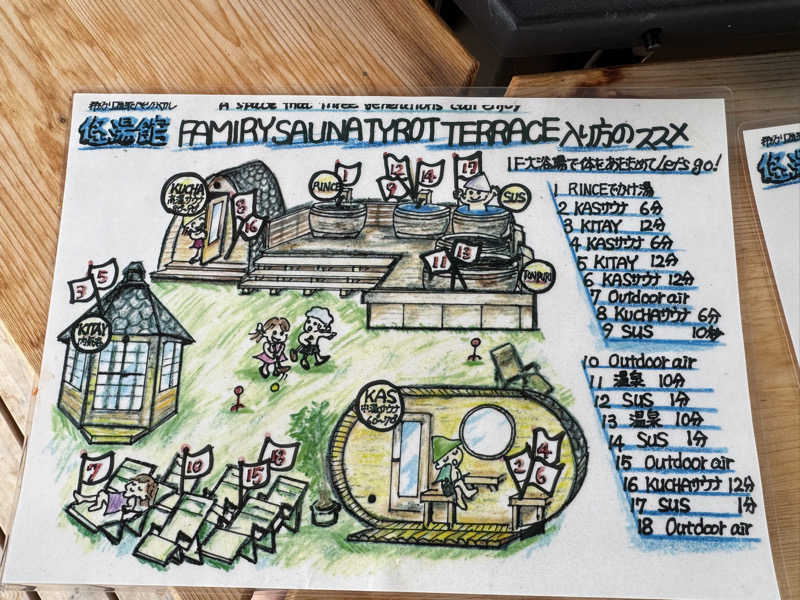 A space that three generations can enjoy
悠湯館 FAMIRY SAUNA TYROT TERRACE 入り方のススメ
1F大浴場で体をあたためてLet's go!
1 RINCEでかけ湯
2 KASサウナ 6分
3 KITAY 12分
4 KASサウナ 6分
5 KITAY 12分
6 KASサウナ 12分
7 Outdoor air
8 KUCHAサウナ 6分
9 SUS 10秒
10 Outdoor air
11 温泉 10分
12 SUS 1分
13 温泉 10分
14 SUS 1分
15 Outdoor air
16 KUCHAサウナ 12分
17 SUS 1分
18 Outdoor air
KUCHA
高温サウナ
8
16
RINCE
1
12
9
14
17
SUS
11
13
3
5
KITAY
KAS
中温サウナ
2
4
6
7
10
15
18
悠